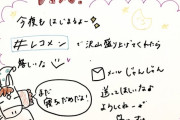 今夜も はじまるよー
#レコメン で 沢山 盛り上げてくれたら
嬉しいな
メール じゃんじゃん
送ってほしいなぁ
よろしねーが
まだ
寝ちゃだめだよ!